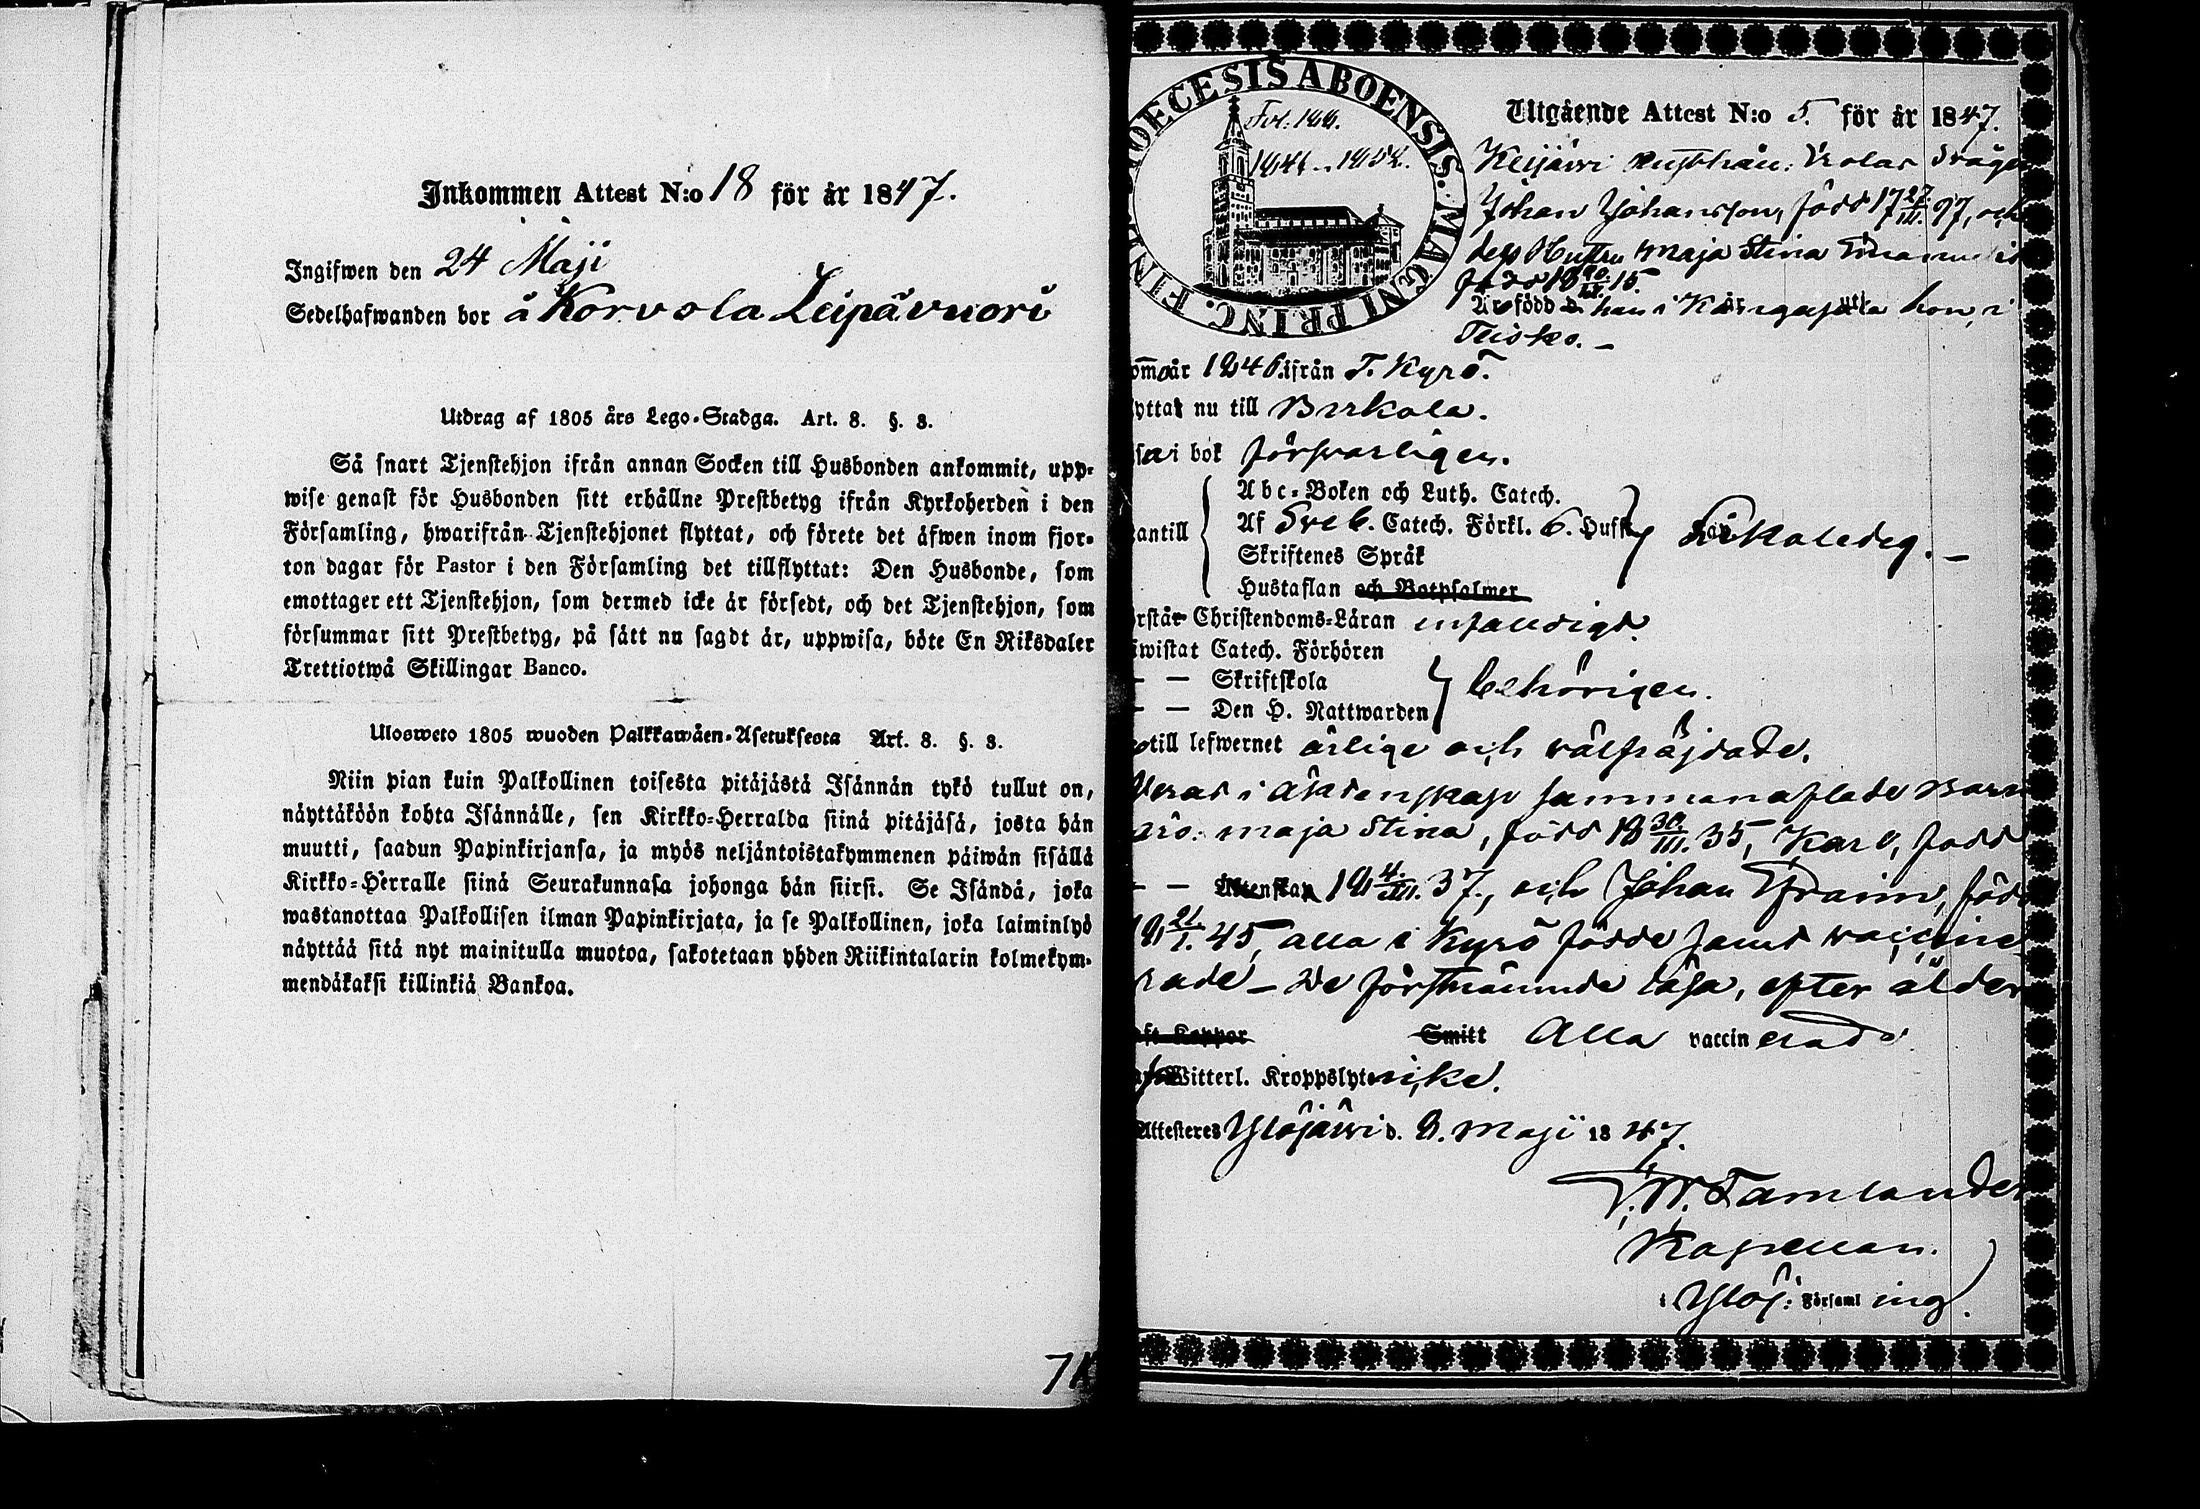 Inkommen Attest N:o 18 för år 1847.
Ingifwen den 24 Maji
Sedelhafwanden bor å Korvola Leipävuori
Utdrag af 1805 års Lego-Stadga. Art. 8. §. 8.
Så snart Tjenstehjon ifrån annan Socken till Husbonden ankommit, upp-
wise genast för Husbonden sitt erhållne Prestbetyg ifrån Kyrkoherden i den
Församling, hwarifrån Tjenstehjonet flyttat, och förete det äfwen inom fjor-
ton dagar för Pastor i den Församling det tillflyttat: Den Husbonde, som
emottager ett Tjenstehjon, som dermed icke är försedt, och det Tjenstehjon, som
försummar sitt Prestbetyg, på sätt nu sagdt är, uppwisa, böte En Riksdaler
Trettiotwå Skillingar Banco.
Ulosweto 1805 wuoden Palkkawäen-Asetuksesta Art. 8. §. 8.
Niin pian kuin Palkollinen toisesta pitäjästä Isännän tykö tullut on,
näyttäköön kohta Isännälle, sen Kirkko-Herralda siinä pitäjäsä, josta hän
muutti, saadun Papinkirjansa, ja myös neljäntoistakymmenen päiwän sisällä
Kirkko-Herralle siinä Seurakunnasa johonga hän siirsi. Se Isändä, joka
wastanottaa Palkollisen ilman Papinkirjata, ja se Palkollinen, joka laiminlyö
näyttää sitä nyt mainitulla muotoa, sakotetaan yhden Riikintalarin kolmekym-
mendäkaksi killinkiä Bankoa.
DIOECESIS ABOENSIS. MAGNI PRINC. FIN
Fol: 166.
1846 - 1852.
Utgående Attest N:o 5. för år 1847.
Keijärvi
Johan Johansson, född 17 27/III. 97, och
dess Hustru Maja Stina
född 18 15.
Äro född han i Kangasala hon i
Teisko.
om år 1846 ifrån T. Kyrö.
yttat nu till Birkala.
sa i bok försvarligen.
antill
Abc-Boken och Luth. Catech.
Af Sveb. Catech. Förkl. 6. Hufst
Skriftenes Språk
Hustaflan och Botpsalmer
rstår Christendoms-Läran enfaldigt.
iwistat Catech. Förhören
— — Skriftskola
— — Den H. Nattwarden
behörigen.
till lefwernet ärlige och välfräjdade.
Deras i äktenskap sammanaflade Barn
äro: Maja Stina, född 18 30/III. 35, Karl, född
— — 18 4/III. 37, och Johan Efraim, född
18 21/1. 45, alla i Kyrö födde samt vaccine
rade — De förstnämnde läsa, efter ålder
Koppor Smitt Alla vaccinerade
Witterl. Kroppslyte icke.
Attesteres Ylöjärvi d. 8. Maji 1847.
Tamlander
Kapellan.
i Ylöj: Församling.